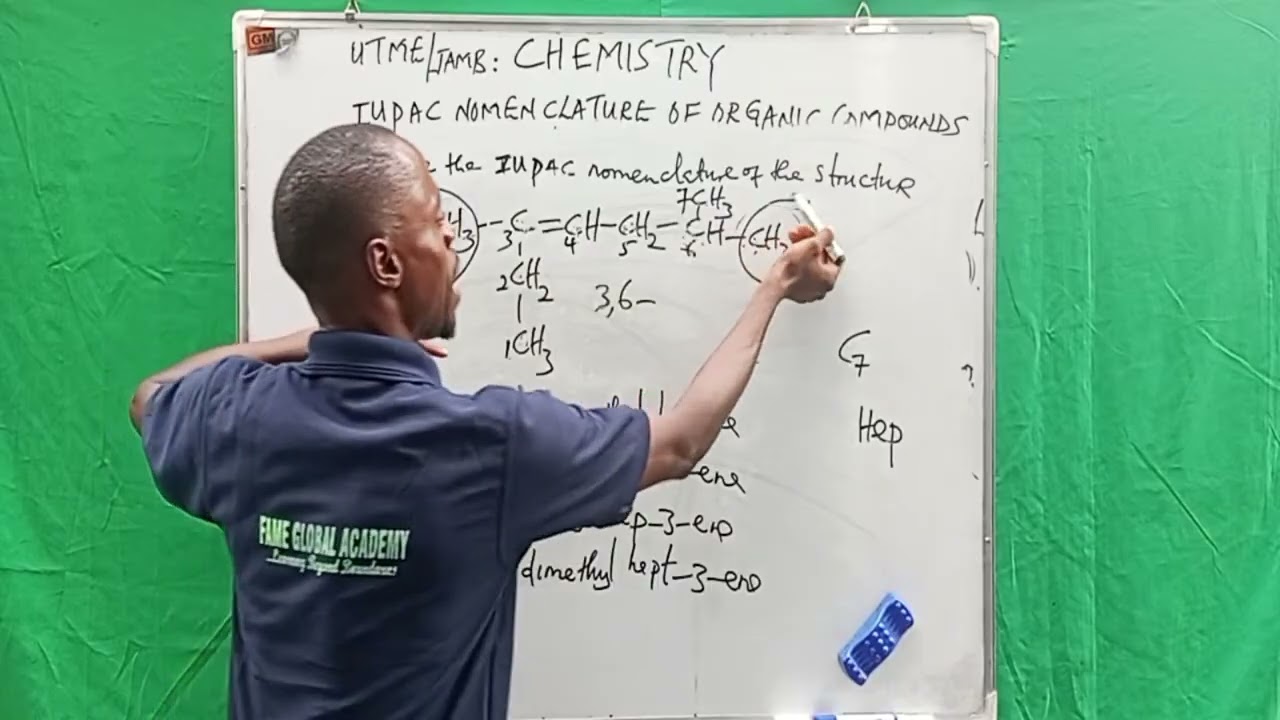 GM
UTME/JAMB: CHEMISTRY
IUPAC NOMENCLATURE OF ORGANIC COMPOUNDS
the IUPAC nomenclature of the structure
7CH3
H3--3C=4CH-5CH2-6CH-CH3
2CH2 3,6-
1CH3
C7
Hep
-ene
p-3-ene
dimethyl hept-3-ene
FAME GLOBAL ACADEMY
...Learning Beyond Boundaries